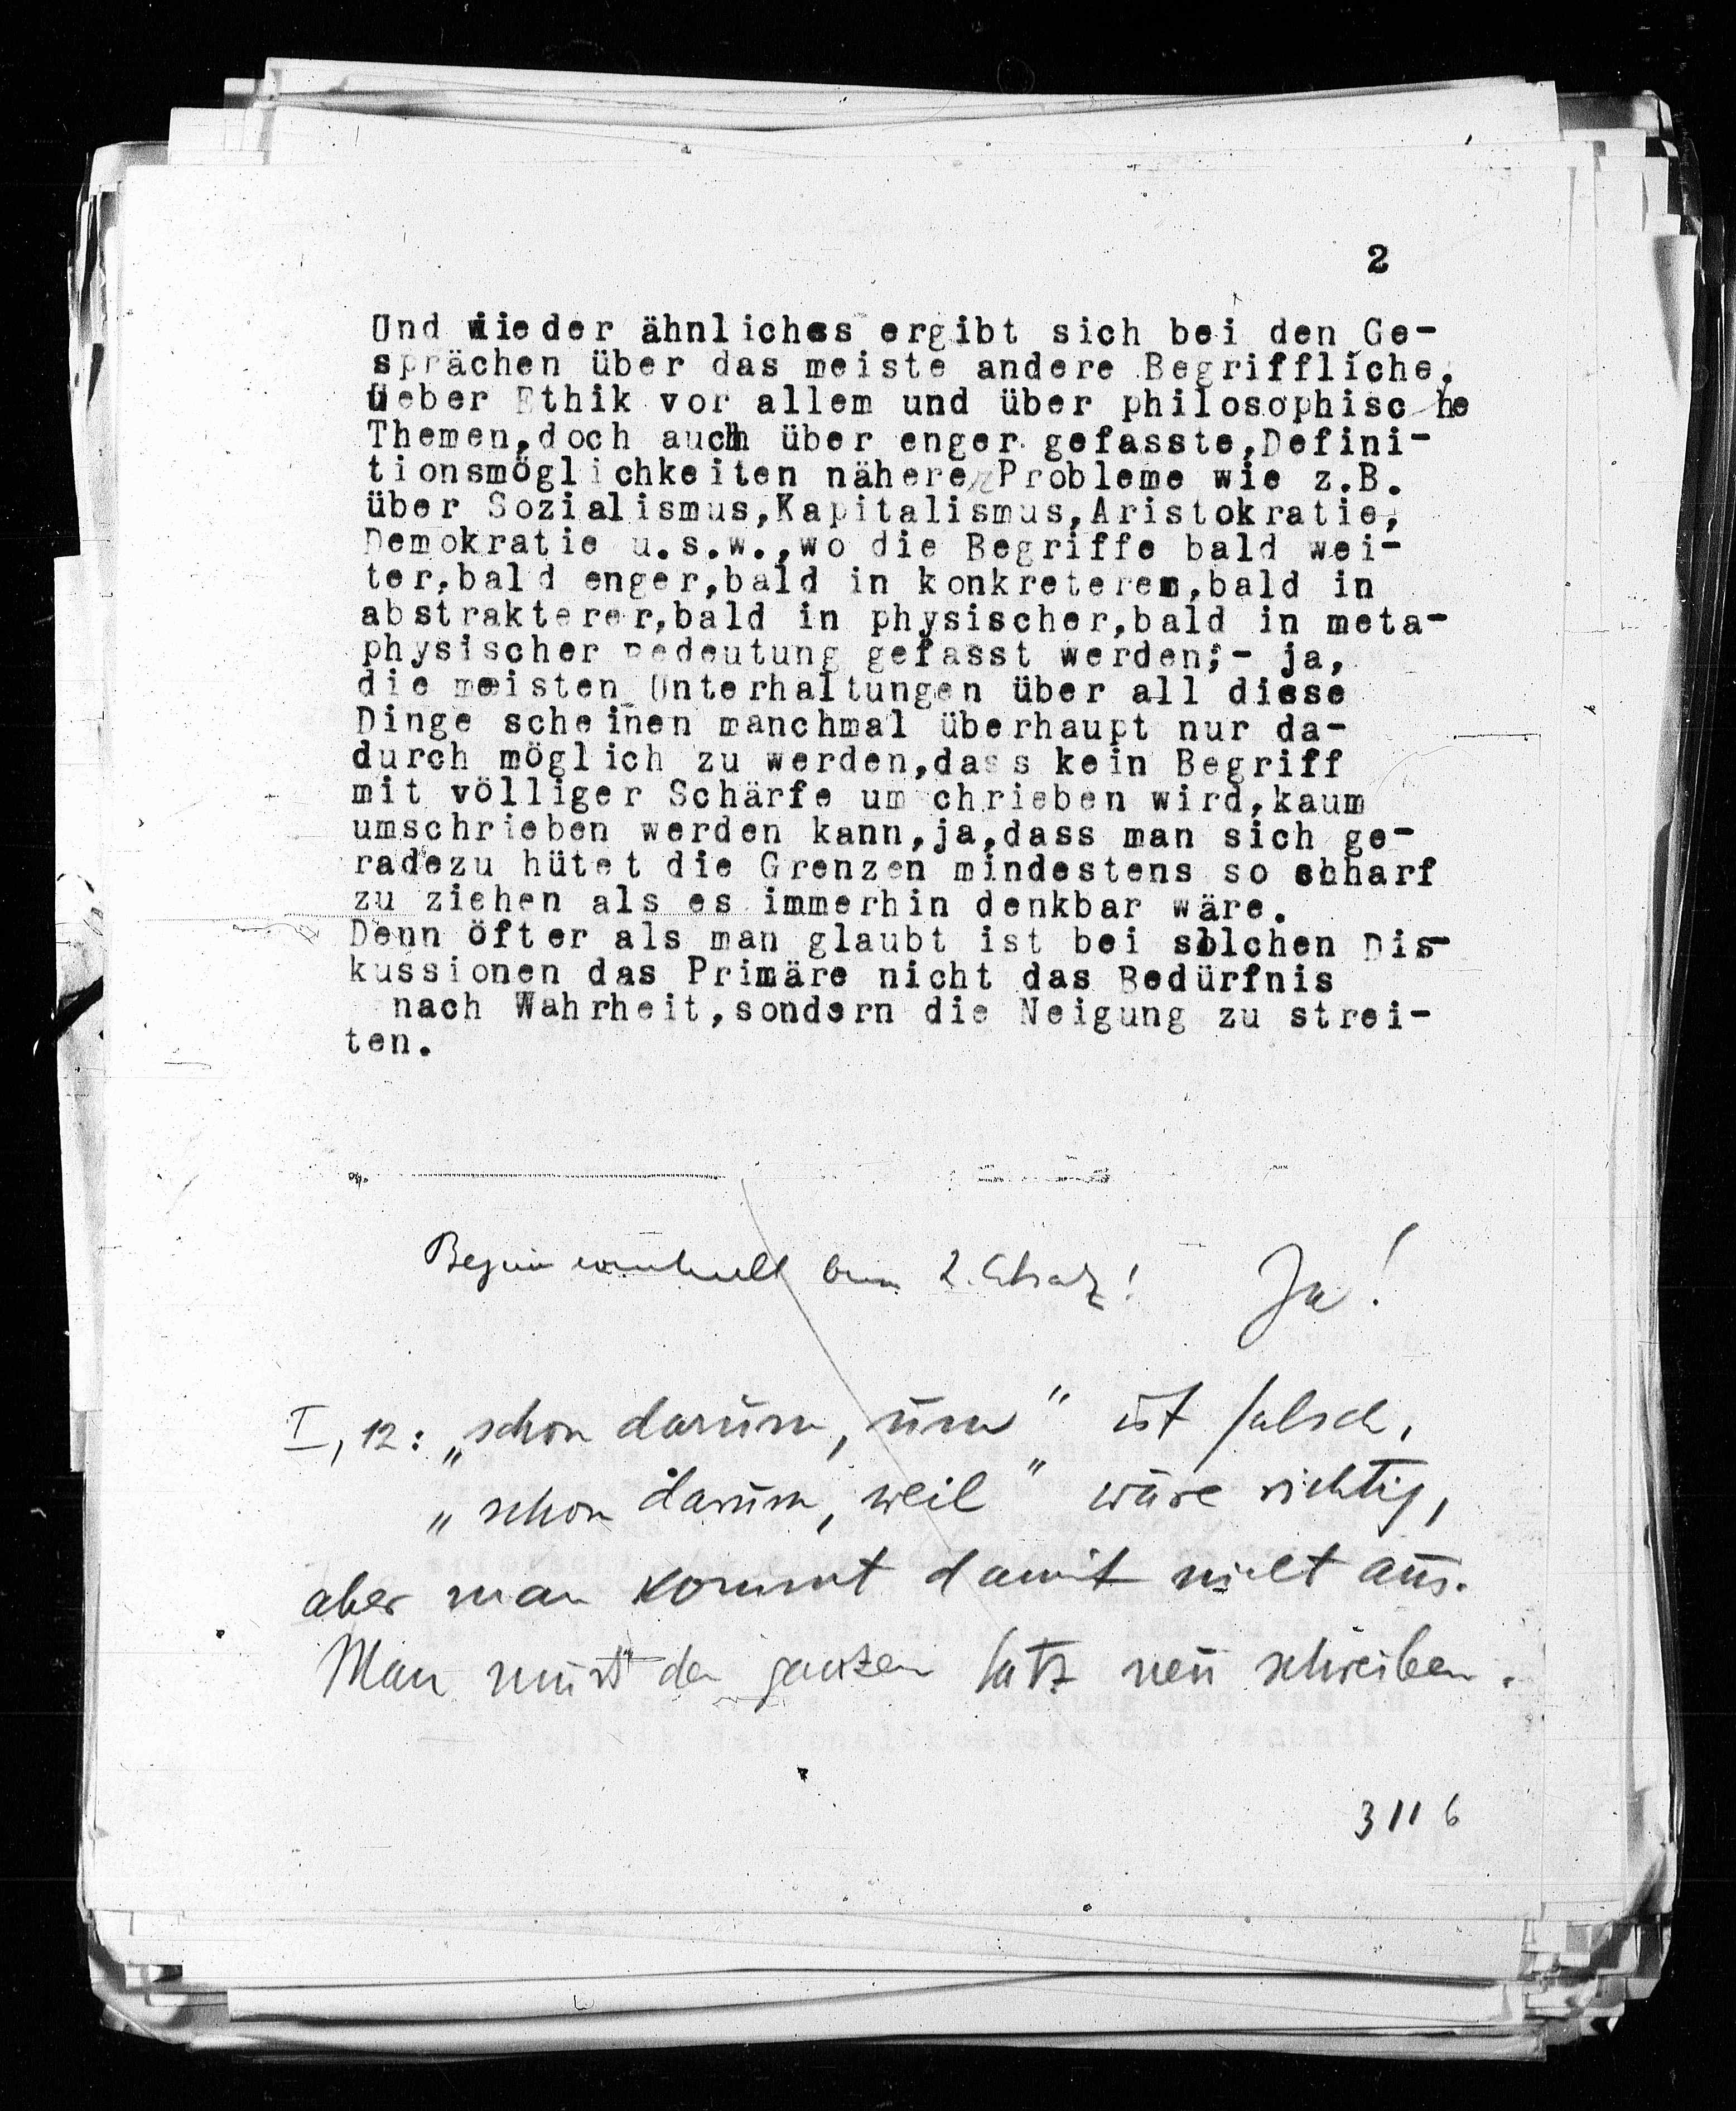 2
Und wieder ähnliches ergibt sich bei den Ge-
sprächen über das meiste andere Begriffliche.
Ueber Ethik vor allem und über philosophische
Themen,doch auch über enger gefasste,Defini-
tionsmöglichkeiten nähere Probleme wie z.B.
über Sozialismus,Kapitalismus,Aristokratie,
Demokratie u.s.w.,wo die Begriffe bald wei-
ter,bald enger,bald in konkreterem,bald in
abstrakterer,bald in physischer,bald in meta-
physischer Bedeutung gefasst werden;- ja,
die meisten Unterhaltungen über all diese
Dinge scheinen manchmal überhaupt nur da-
durch möglich zu werden,dass kein Begriff
mit völliger Schärfe um chrieben wird,kaum
umschrieben werden kann,ja,dass man sich ge-
radezu hütet die Grenzen mindestens so scharf
zu ziehen als es immerhin denkbar wäre.
Denn öfter als man glaubt ist bei solchen Dis-
kussionen das Primäre nicht das Bedürfnis
nach Wahrheit,sondern die Neigung zu strei-
ten.
Beginn eventuell beim 2. Absatz! Ja!
I, 12: „schon darum, um“ ist falsch,
„schon darum, weil“ wäre richtig,
aber man kommt damit nicht aus.
Man muß den ganzen Satz neu schreiben.
3116